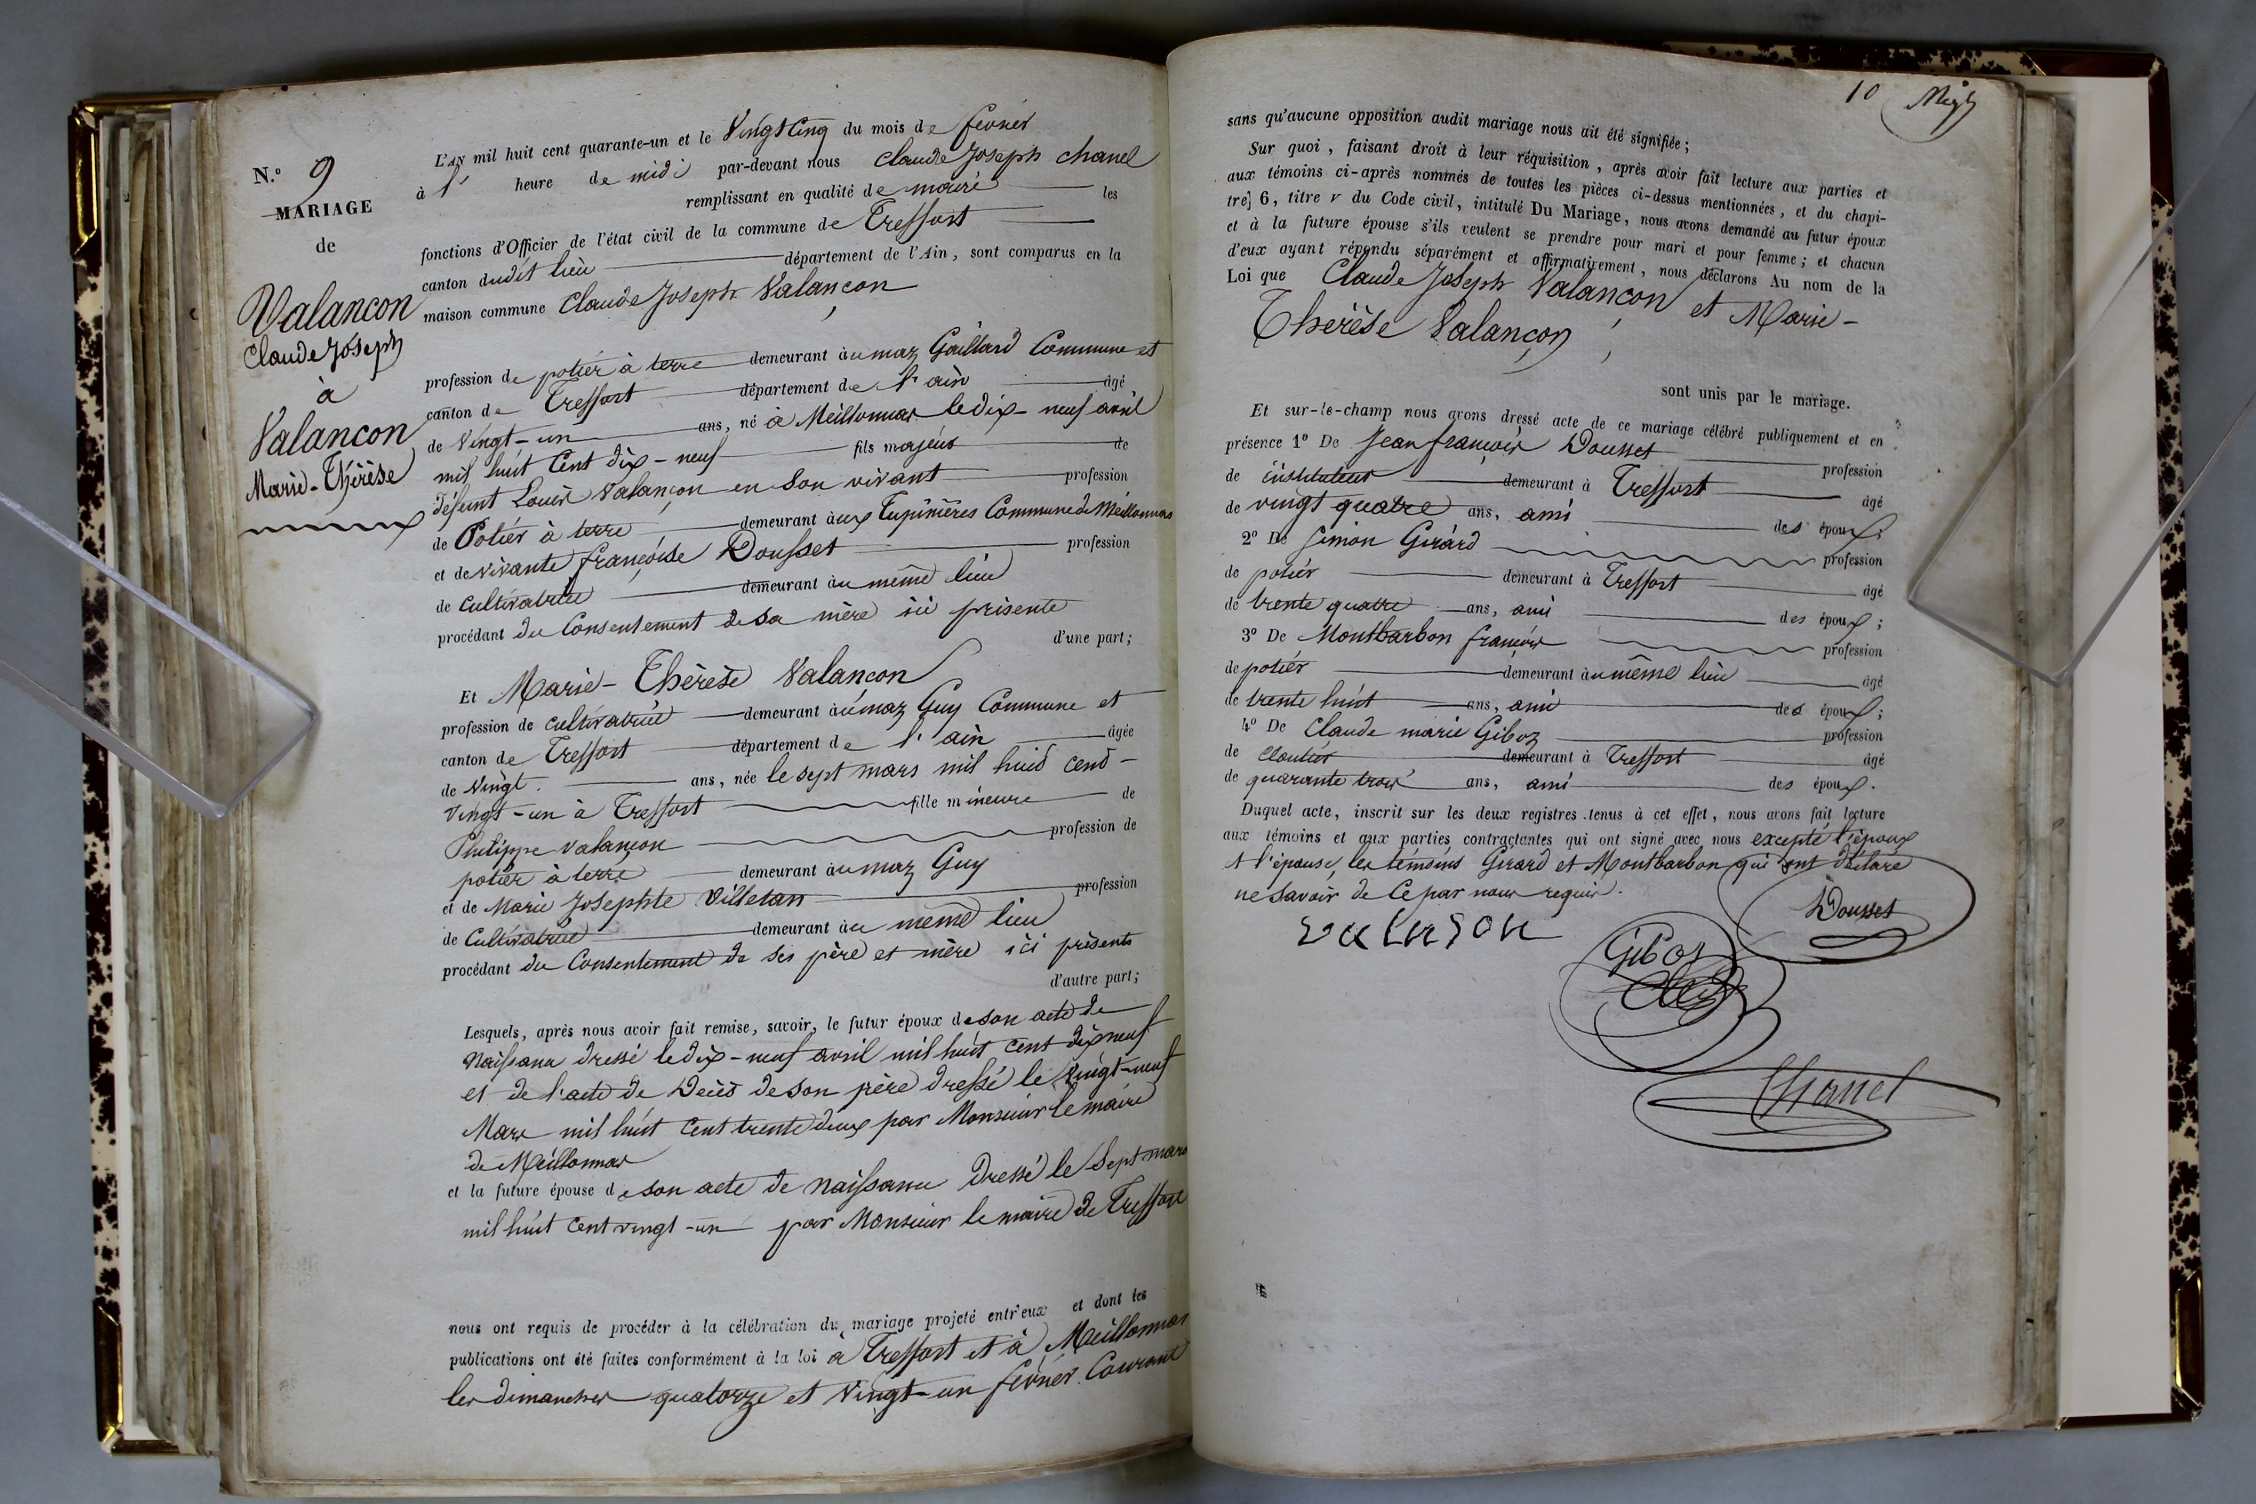 N.° 9
MARIAGE
de
Valancon
Claude Joseph
à
Valancon
Marie-Thérèse
L'AN mil huit cent quarante-un et le Vingt Cinq du mois de fevrier
à l' heure de midi par-devant nous Claude Joseph Chanel
remplissant en qualité de maire les
fonctions d'Officier de l'état civil de la commune de Treffort
canton dudit lieu département de l'Ain, sont comparus en la
maison commune Claude Joseph Valançon
profession de potier à terre demeurant au maz Gaillard Commune et
canton de Treffort département de l'ain âgé
de Vingt-un ans, né à Meillonnas le dix-neuf avril
mil huit Cent dix-neuf fils majeur de
défunt Louis Valançon en Son vivant profession
de Potier à terre demeurant aux Tupinières Commune de Meillonnas
et de vivante françoise Dousset profession
de Cultivatrice demeurant au même lieu
procédant du Consentement de Sa mère ici présente
d'une part;
Et Marie-Thérèse Valançon
profession de cultivatrice demeurant au maz Guy Commune et
canton de Treffort département de l'ain âgée
de Vingt ans, née le sept mars mil huit cent-
vingt-un à Treffort fille mineure de
Philippe Valançon profession de
potier à terre demeurant au maz Guy
et de Marie Josephte Villetan profession
de Cultivatrice demeurant au même lieu
procédant du Consentement de Ses père et mère ici présents
d'autre part;
Lesquels, après nous avoir fait remise, savoir, le futur époux de son acte de
Naissance dressé le dix-neuf avril mil huit cent dix neuf
et de l'acte de Décès de son père dressé le Vingt-neuf
Mars mil huit Cent trente deux par Monsieur le maire
de Meillonnas
et la future épouse de son acte de naissance Dressé le Sept mars
mil huit Cent vingt-un par Monsieur le maire de Treffort
nous ont requis de procéder à la célébration du mariage projeté entr'eux et dont les
publications ont été faites conformément à la loi à Treffort et à Meillonnas
les dimanches quatorze et Vingt-un fevrier Courant
10
sans qu'aucune opposition audit mariage nous ait été signifiée;
Sur quoi, faisant droit à leur réquisition, après avoir fait lecture aux parties et
aux témoins ci-après nommés de toutes les pièces ci-dessus mentionnées, et du chapi-
tre] 6, titre v du Code civil, intitulé Du Mariage, nous avons demandé au futur époux
et à la future épouse s'ils veulent se prendre pour mari et pour femme; et chacun
d'eux ayant répondu séparément et affirmativement, nous déclarons Au nom de la
Loi que Claude Joseph Valançon et Marie-
Thérèse Valançon
sont unis par le mariage.
Et sur-le-champ nous avons dressé acte de ce mariage célébré publiquement et en
présence 1° De Jean françois Dousset profession
de instituteur demeurant à Treffort âgé
de vingt quatre ans, ami des époux;
2° De Simon Girard profession
de potier demeurant à Treffort âgé
de trente quatre ans, ami des époux;
3° De Montbarbon françois profession
de potier demeurant au même lieu âgé
de trente huit ans, ami des époux;
4° De Claude marie Giboz profession
de Cloutier demeurant à Treffort âgé
de quarante trois ans, ami des époux.
Duquel acte, inscrit sur les deux registres tenus à cet effet, nous avons fait lecture
aux témoins et aux parties contractantes qui ont signé avec nous excepté l'époux
et l'épouse, les témoins Girard et Montbarbon qui ont déclaré
ne Savoir de Ce par nous requis.
Dousset
valnson
Giboz
Chanel